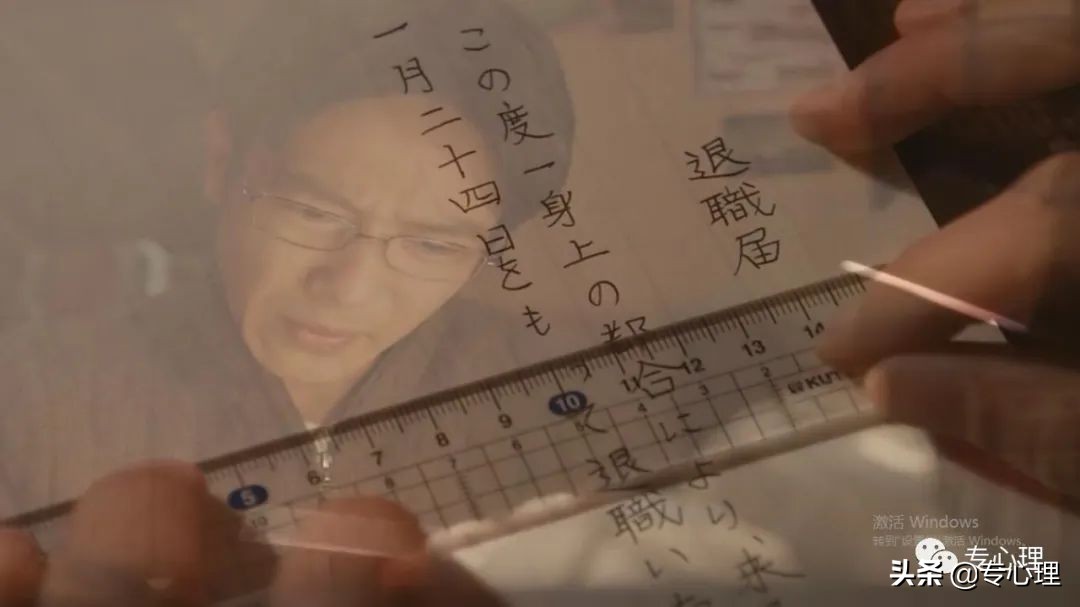 退職届
この度一身上の都合により、来
一月二十四日をも
て退職い
5 6 7 8 9 10 11 12 13 14
激活 Windows
转到"设置"以激活 Windows。
专心理
头条 @专心理